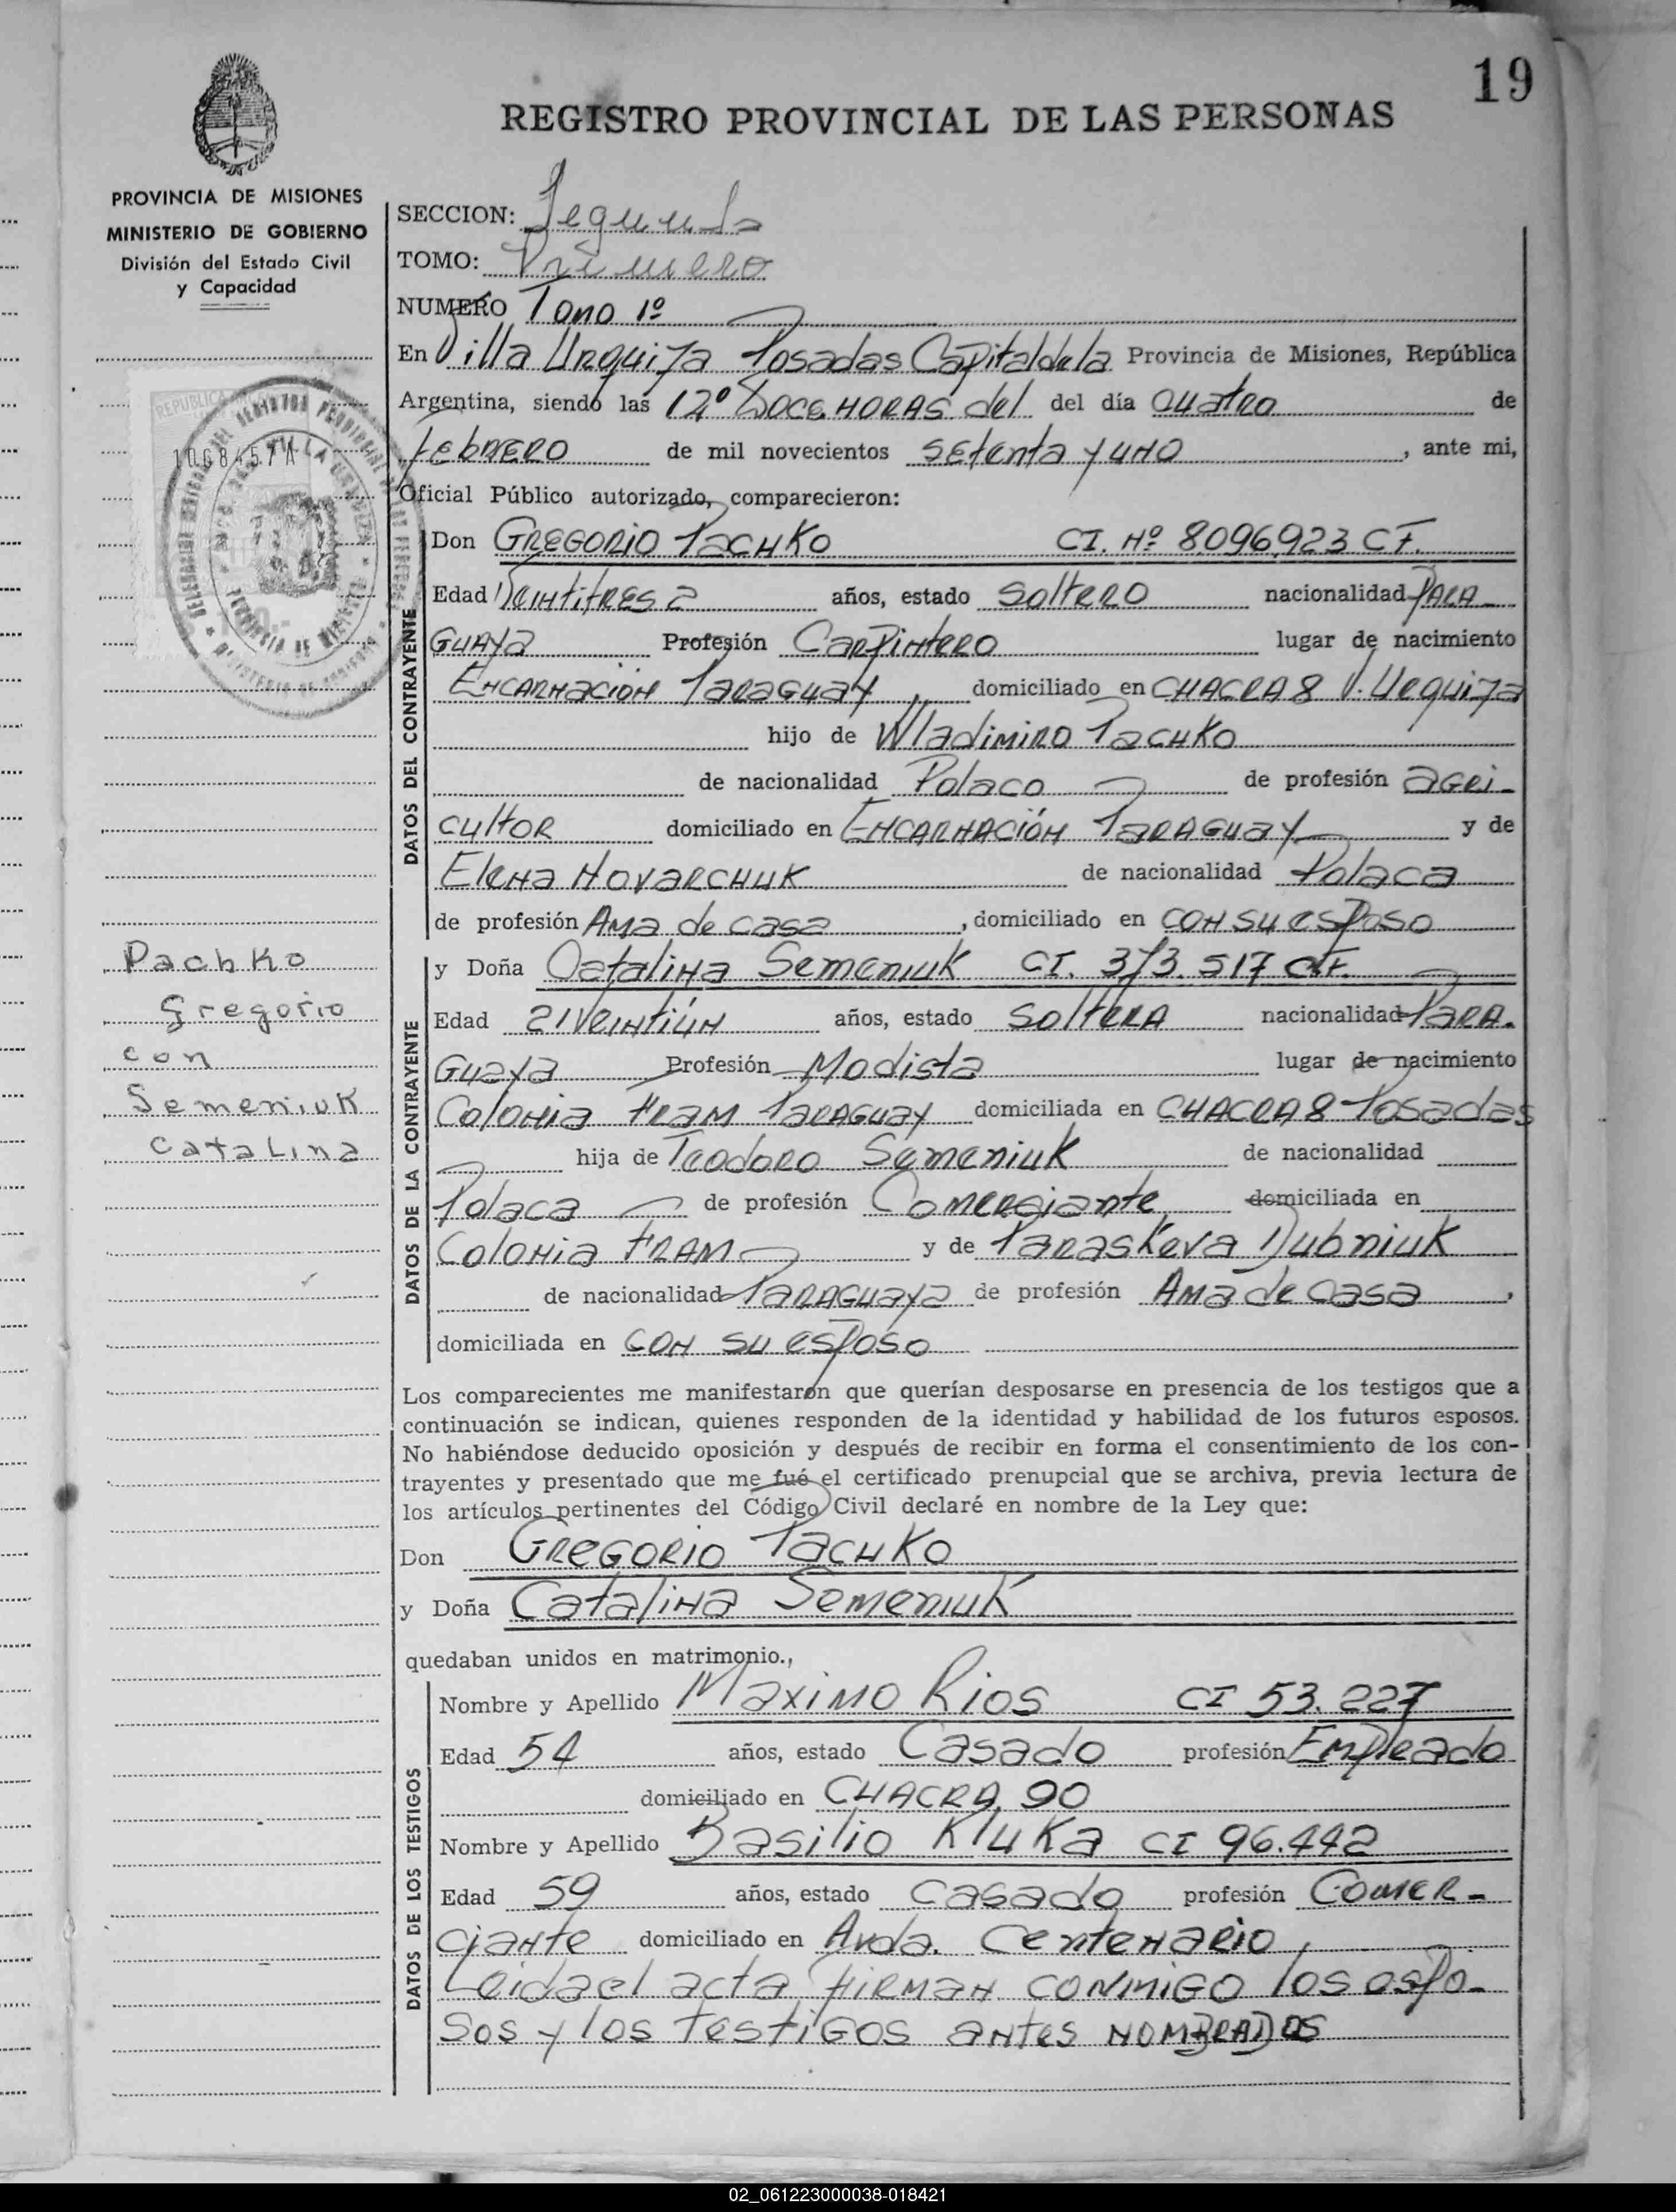 19
REGISTRO PROVINCIAL DE LAS PERSONAS
PROVINCIA DE MISIONES
MINISTERIO DE GOBIERNO
División del Estado Civil
y Capacidad
SECCION: Segunda
TOMO: Primero
NUMERO Tomo 1º
En Villa Urquiza Posadas Capital de la Provincia de Misiones, República
Argentina, siendo las 12º DOCE HORAS del del día cuatro de
Febrero de mil novecientos setenta y uno, ante mi,
Oficial Público autorizado, comparecieron:
REPUBLICA
1068457A
DATOS DEL CONTRAYENTE
Don GREGORIO PACHKO CI. Nº 8096923 CF.
Edad Veintitres años, estado Soltero nacionalidad PARA
GUAYA Profesión Carpintero lugar de nacimiento
ENCARNACIÓN PARAGUAY, domiciliado en CHACRA 8 V. Urquiza
hijo de Wladimiro Pachko
de nacionalidad Polaco de profesión agri-
cultor domiciliado en ENCARNACIÓN PARAGUAY y de
Elena Novarchuk de nacionalidad Polaca
de profesión Ama de casa, domiciliado en con su esposo
Pachko
Gregorio
con
Semeniuk
Catalina
DATOS DE LA CONTRAYENTE
y Doña Catalina Semeniuk CI. 373.517 CF.
Edad 21 Veintiún años, estado Soltera nacionalidad PARA.
GUAYA Profesión Modista lugar de nacimiento
Colonia FRAM PARAGUAY domiciliada en CHACRA 8 Posadas
hija de Teodoro Semeniuk de nacionalidad
Polaca de profesión Comerciante domiciliada en
Colonia FRAM y de Paraskeva Dubniuk
de nacionalidad PARAGUAYA de profesión Ama de Casa,
domiciliada en con su esposo
Los comparecientes me manifestaron que querían desposarse en presencia de los testigos que a
continuación se indican, quienes responden de la identidad y habilidad de los futuros esposos.
No habiéndose deducido oposición y después de recibir en forma el consentimiento de los con-
trayentes y presentado que me fué el certificado prenupcial que se archiva, previa lectura de
los artículos pertinentes del Código Civil declaré en nombre de la Ley que:
Don GREGORIO PACHKO
y Doña Catalina Semeniuk
quedaban unidos en matrimonio.,
DATOS DE LOS TESTIGOS
Nombre y Apellido Maximo Rios CI 53.227
Edad 54 años, estado Casado profesión Empleado
domiciliado en CHACRA 90
Nombre y Apellido Basilio Kluka CI 96.442
Edad 59 años, estado casado profesión Comer-
ciante domiciliado en Avda. Centenario,
Leida el acta FIRMAN CONMIGO los espo-
sos y los testigos antes NOMBRADOS
02_061223000038-018421